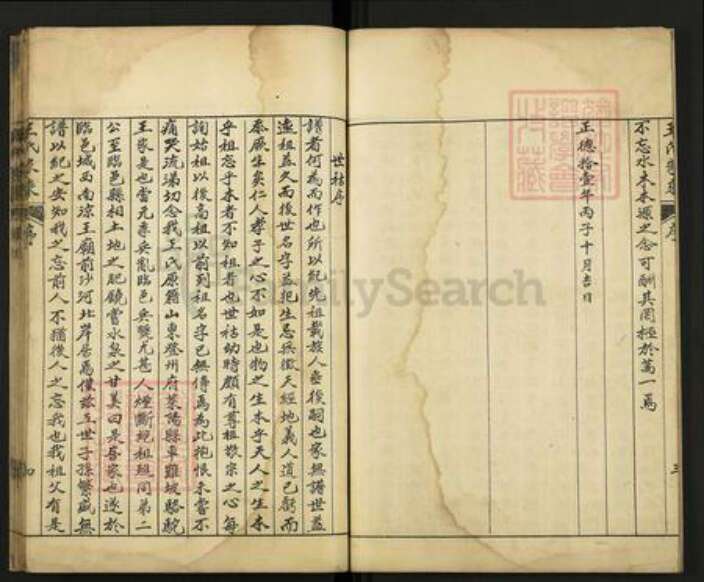 不忘水木本源之念可酬其罔極於萬一焉
正德拾壹年丙子十月吉日
三
世祜序
譜者何為而作也所以紀先祖載族人垂後嗣也家無譜世益
遠祖益久而後世名字益犯生忌無徵天經地義人道已虧而
忝厥生矣仁人孝子之心不如是也物之生本乎天人之生本
乎祖忘乎本者不知祖者也世祜幼時頗有尊祖敬宗之心每
詢始祖以後高祖以前列祖名字已無傳焉為此抱恨未嘗不
痛哭流涕切念我王氏原籍山東登州府萊陽縣車難坡駱駝
王家是也當元季兵亂臨邑兵燹尤甚人煙斷絕祖同第二
公至臨邑縣相土地之肥饒嘗水泉之甘美曰是吾家也遂於
臨邑城西南涼王廟前沙河北岸居焉僅茲五世子孫繁盛無
譜以紀之安知我之忘前人不猶後人之忘我也我祖父有是
王氏家乘
序
四
FamilySearch